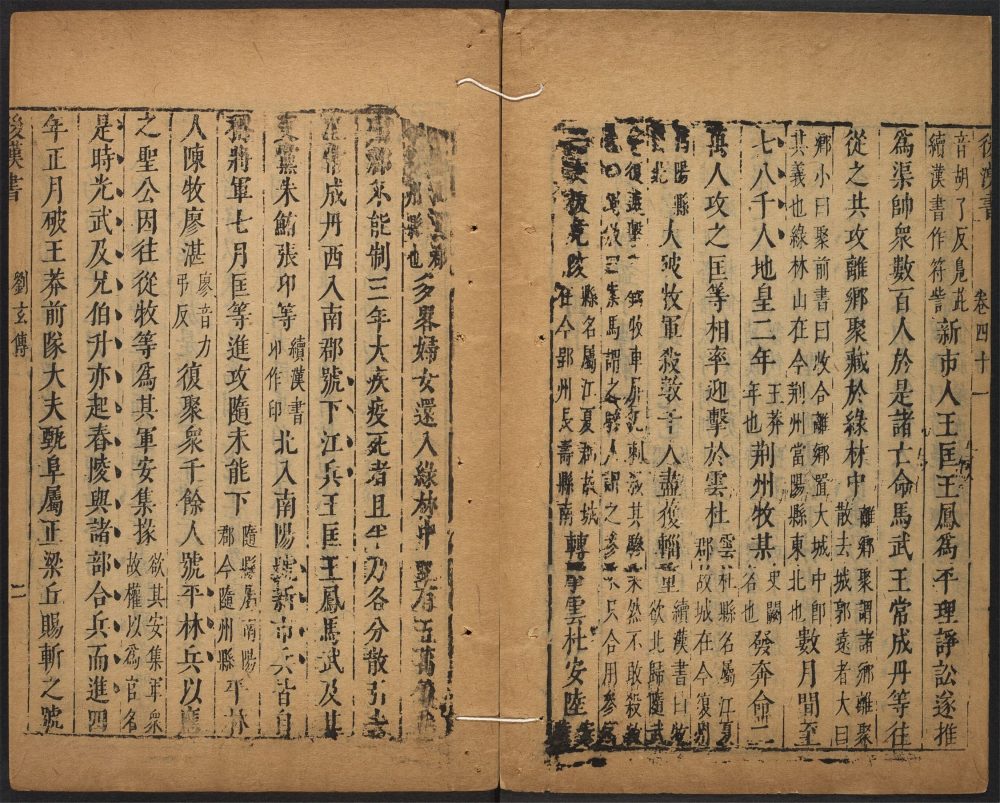 後漢書 卷四十一
音胡了反鳧茈續漢書作符訾新市人王匡王鳳爲平理諍訟遂推
爲渠帥衆數百人於是諸亡命馬武王常成丹等往
從之共攻離鄉聚臧於綠林中離鄉聚謂諸鄉離聚散去城郭遠者大曰
鄉小曰聚前書曰收合離鄉置大城中卽其義也綠林山在今荆州當陽縣東北也數月間至
七八千人地皇二年王莽年也荆州牧某史闕名也發奔命二
萬人攻之匡等相率迎擊於雲杜雲杜縣名屬江夏郡故城在今復州
沔陽縣西北大破牧軍殺數千人盡獲輜重續漢書曰牧欲北歸隨武
等復遮擊之鉤牧車屏泥刺殺其驂乘然不敢殺牧馬謂之驂人謂之參只合用參字
遂攻拔竟陵縣名屬江夏郡故城在今郢州長壽縣南轉擊雲杜安陸
郡州縣也多畧婦女還入綠林中至有五萬餘口
州郡不能制三年大疾疫死者且半乃各分散引去
王常成丹西入南郡號下江兵王匡王鳳馬武及其
支黨朱鮪張卬等續漢書卬作印北入南陽號新市兵皆自
稱將軍七月匡等進攻隨未能下隨縣屬南陽郡今隨州縣平林
人陳牧廖湛廖音力弔反復聚衆千餘人號平林兵以應
之聖公因往從牧等爲其軍安集掾欲其安集軍衆故權以爲官名
是時光武及兄伯升亦起舂陵與諸部合兵而進四
年正月破王莽前隊大夫甄阜屬正梁丘賜斬之號
後漢書 劉玄傳 二